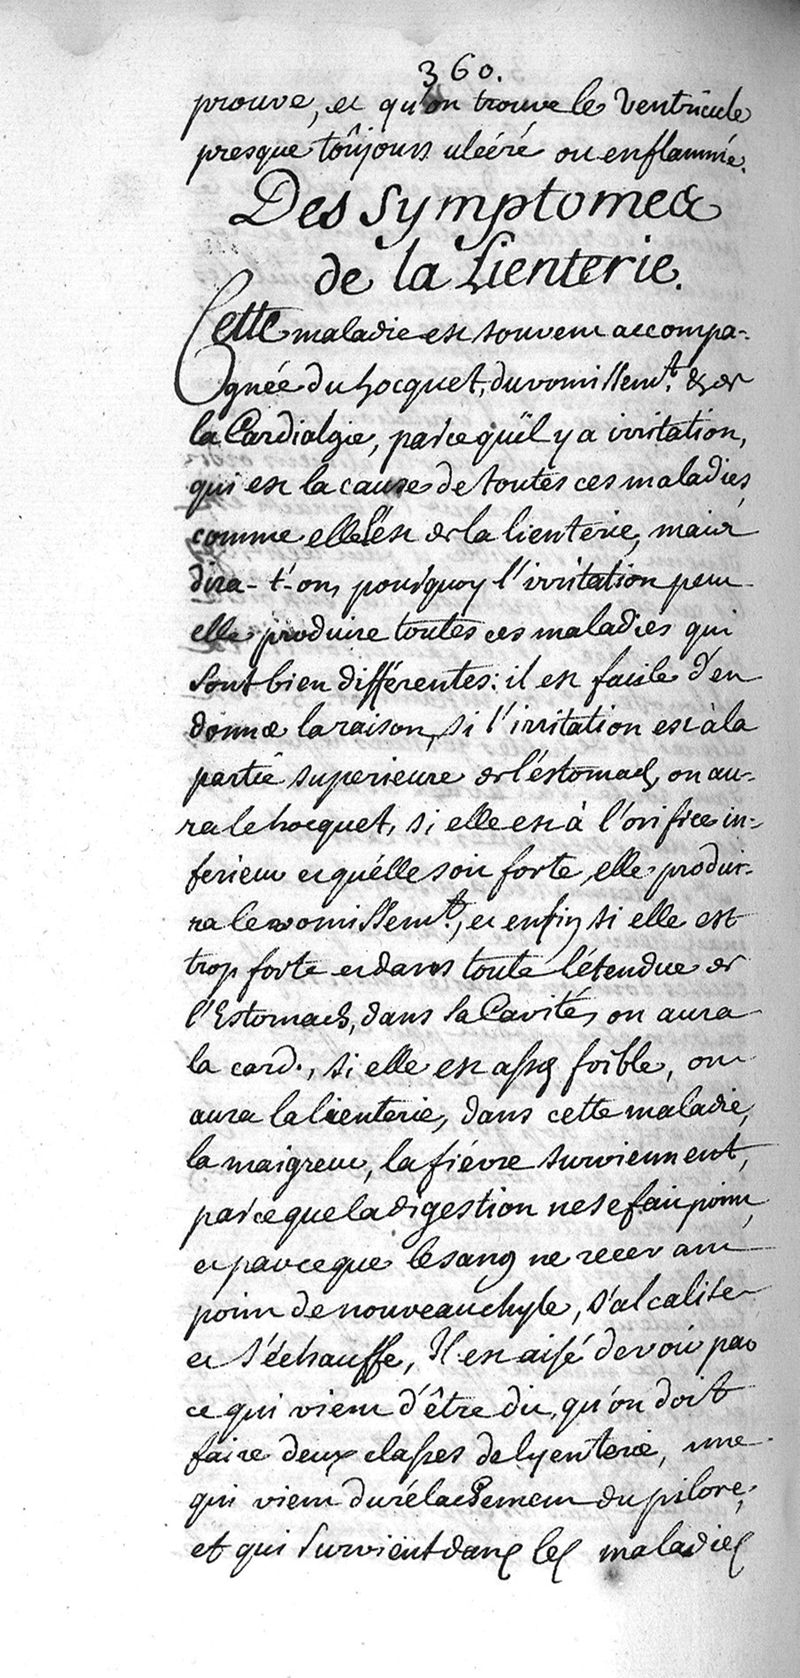 360.
prouve, et qu'on trouve le Ventricule
presque toûjours ulcéré ou enflammé.
Des Symptomes
de la Lienterie.
Cette maladie est souvent accompa-
gnée du hocquet, du vomissemt. & de
la Cardialgie, parce qu'il y a irritation,
qui est la cause de toutes ces maladies,
comme elle l'est de la lienterie, mais
dira-t'-on, pourquoy l'irritation peut
elle produire toutes ces maladies qui
sont bien différentes: il est facile d'en
donner la raison, si l'irritation est à la
partie superieure de l'éstomach, on au-
ra le hocquet, si elle est à l'orifice in-
ferieur et qu'élle soit forte, elle produi-
ra le vomissemt., et enfin si elle est
trop forte et dans toute l'étendue de
l'Estomach, dans sa Cavité, on aura
la card., si elle est assez foible, on
aura la lienterie, dans cette maladie,
la maigreur, la fiévre surviennent,
parce que la digestion ne se fait point,
et parce que le sang ne recevant
point de nouveau chyle, s'alcalise
et s'échauffe, Il est aisé de voir par
ce qui vient d'être dit, qu'on doit
faire deux classes de lyenterie, une
qui vient du rélachement du pilore,
et qui survient dans les maladies